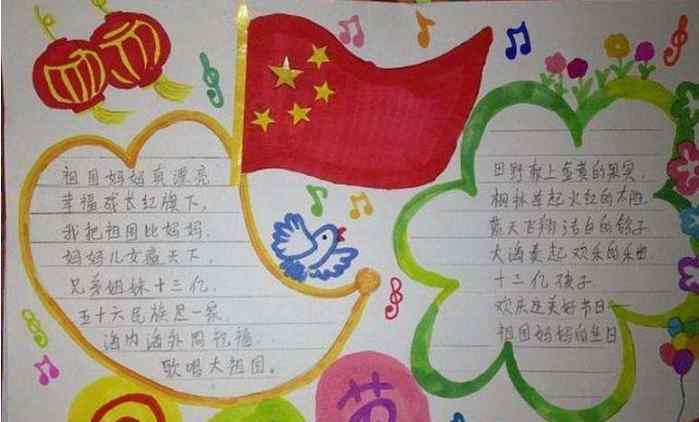 祖国妈妈真漂亮,
幸福成长红旗下,
我把祖国比妈妈.
妈妈儿女遍天下,
兄弟姐妹十三亿.
五十六民族是一家.
海内海外同祝福.
歌唱大祖国。
田野献上金黄的果实.
枫林举起火红的太阳.
蓝天飞翔洁白的鸽子
大海奏起欢乐的乐曲
十三亿孩子
欢庆这美好节日——
祖国妈妈的生日
节